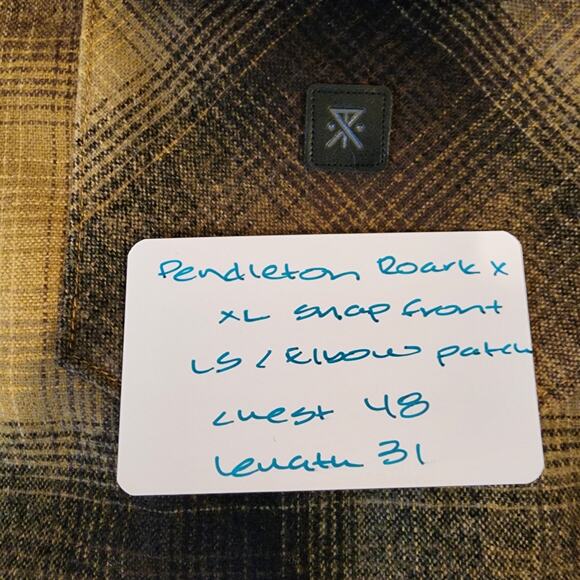 Pendleton Roark x
XL snap front
LS / Elbow patch
chest 48
Length 31